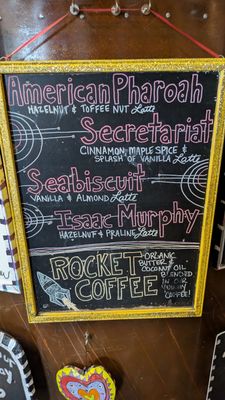 American Pharoah
HAZELNUT & TOFFEE NUT Latte
Secretariat
CINNAMON, MAPLE SPICE &
SPLASH OF VANILLA Latte
Seabiscuit
VANILLA & ALMOND Latte
Isaac Murphy
HAZELNUT & PRALINE Latte
ROCKET
COFFEE
ORGANIC
BUTTER &
COCONUT OIL
BLENDED
IN
COFFEE!